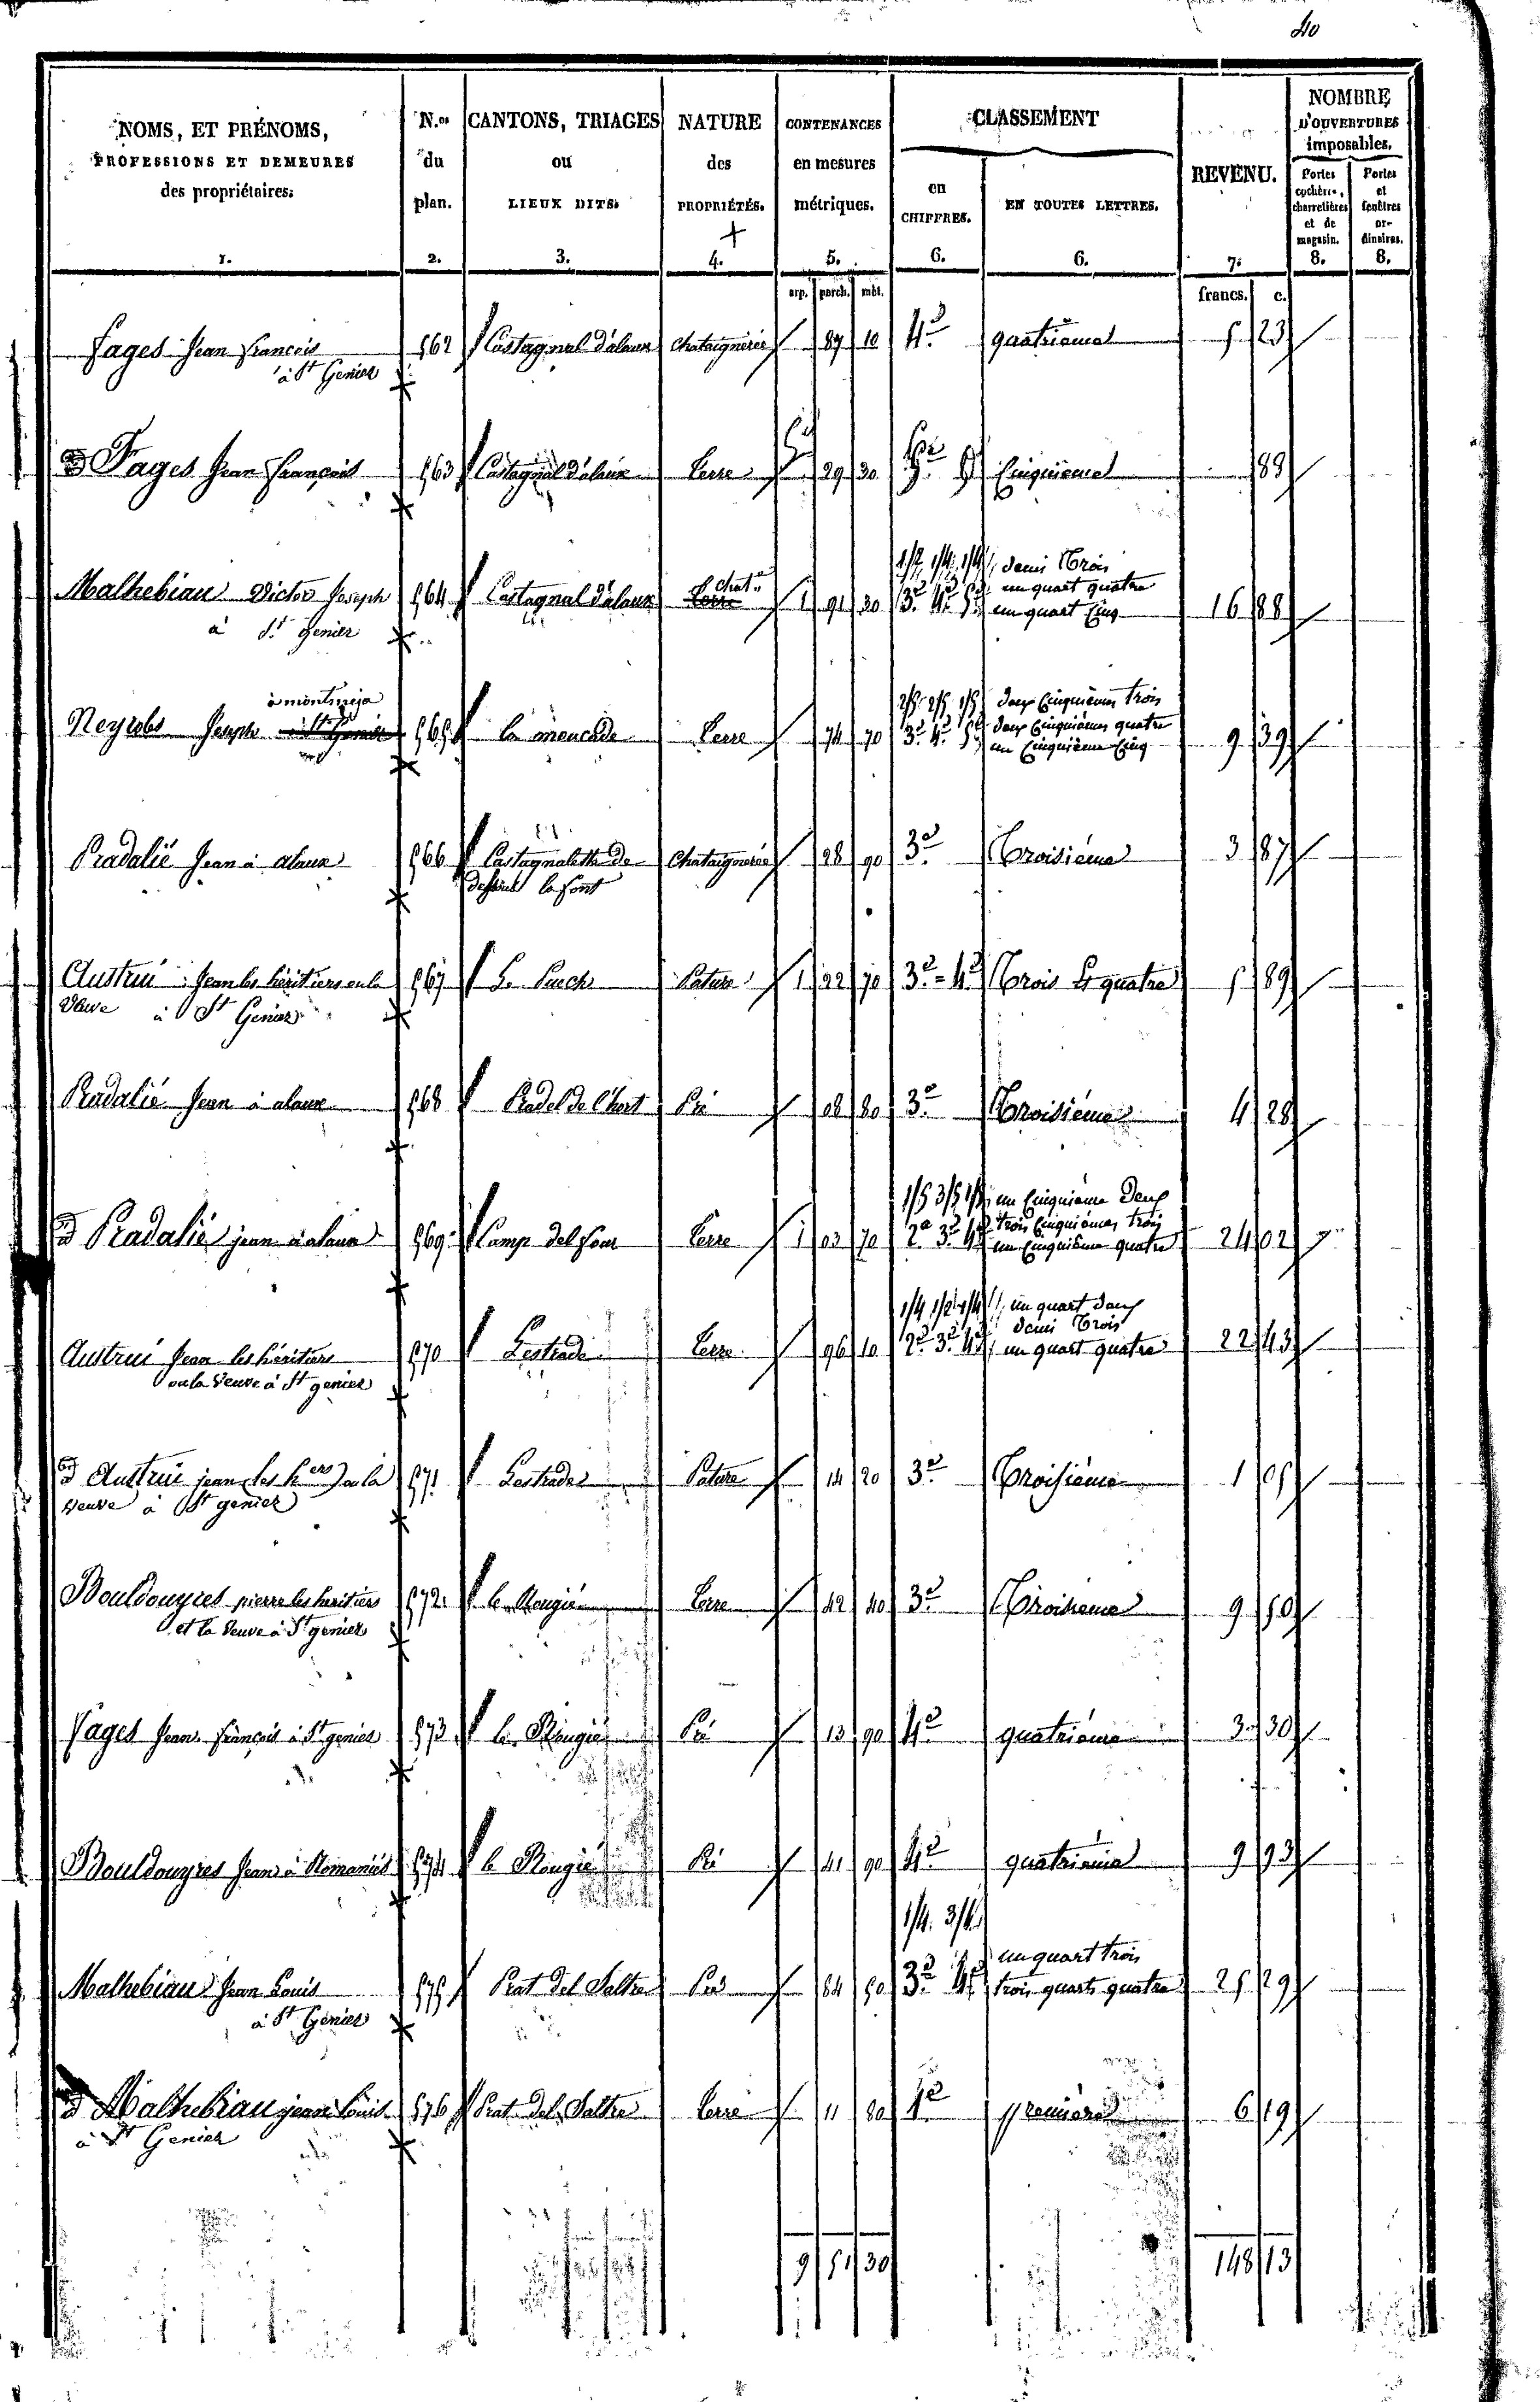 40
NOMS, ET PRÉNOMS, PROFESSIONS ET DEMEURES des propriétaires. 1.
N.os du plan. 2.
CANTONS, TRIAGES ou LIEUX DITS. 3.
NATURE des PROPRIÉTÉS. 4.
CONTENANCES en mesures métriques. 5.
CLASSEMENT
en CHIFFRES. 6.
EN TOUTES LETTRES. 6.
REVENU. 7.
NOMBRE D'OUVERTURES imposables.
Portes cochères, charretières et de magasin. 8.
Portes et fenêtres ordinaires. 8.
arp. perch. mèt. francs. c.
Fages Jean francois 562 Castagnal d'alaux Chataigneraie 87 10 4e quatrieme 5 23
à St Genier
d Fages Jean François 563 Castagnal d'alaux Terre 29 30 5e Cinquieme 88
Malhebiau Victor Joseph 564 Castagnal d'alaux Terre Chat. 1 91 30
à St Genier
1/2 1/4 1/4 demi Trois
3e 4e 5e un quart quatre
un quart Cinq 16 88
à montmeja
Neyrobs Joseph 565 la mencade Terre 74 70
2/5 2/5 1/5 deux Cinquièmes trois
3e 4e 5e deux Cinquièmes quatre
un Cinquième Cinq 9 39
Pradalié Jean à alaux 566 Castagnalette de Chataigneraie 28 90 3e Troisième 3 87
dessous la font
Austrui Jean les héritiers ou la 567 Le Puech Pature 1 22 70 3e 4e Trois Et quatre 5 89
Veuve à St Genier
Pradalié Jean à alaux 568 Pradel de l'hort Pré 08 80 3e Troisième 4 28
d Pradalié jean à alaux 569 Camp del four Terre 1 03 70
1/5 3/5 1/5 un Cinquième Deux
2e 3e 4e trois Cinquièmes trois
un Cinquième quatre 24 02
Austrui Jean les héritiers 570 Lestrade Terre 96 10
ou la Veuve à St genier
1/4 1/2 1/4 un quart deux
2e 3e 4e demi Trois
un quart quatre 22 43
d Austrui jean les hers ou la 571 Lestrade Pature 14 20 3e Troisième 1 05
veuve à St genier
Bouldouyres pierre les heritiers 572 le Rougié Terre 42 40 3e Troisieme 9 50
et la Veuve à St genier
Fages Jean François à St genier 573 le Rougié Pré 13 90 4e quatrième 3 30
Bouldouyres Jean à Romaniès 574 le Rougié Pré 41 90 4e quatrieme 9 93
1/4 3/4
Malhebiau Jean Louis 575 Prat del Saltre Pré 84 50
à St Genier
3e 4e un quart trois
trois quarts quatre 25 29
d Malhebiau jean Louis 576 Prat del Saltre Terre 11 80 1e premiere 6 19
à St Genier
9 51 30 148 13